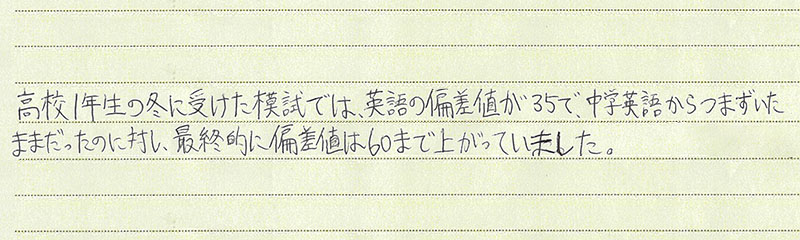 高校1年生の冬に受けた模試では、英語の偏差値が35で、中学英語からつまずいた
ままだったのに対し、最終的に偏差値は60まで上がっていました。